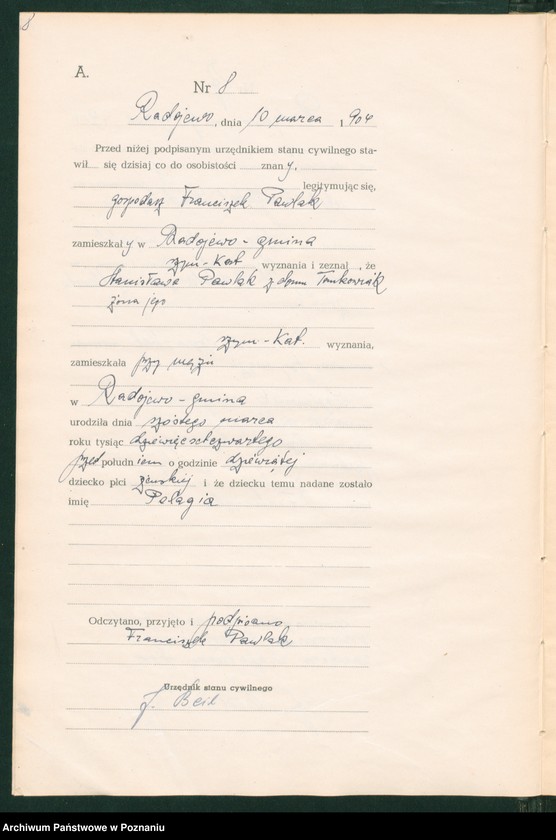 8
A.
Nr 8
Radojewo, dnia 10 marca 1904
Przed niżej podpisanym urzędnikiem stanu cywilnego sta-
wił się dzisiaj co do osobistości znany.
legitymując się,
gospodarz Franciszek Pawlak
zamieszkały w Radojewo - gmina
rzym - Kat. wyznania i zeznał, że
Stanisława Pawlak z domu Tomkowiak
żona jego
rzym - Kat. wyznania,
zamieszkała przy mężu
w Radojewo - gmina
urodziła dnia szóstego marca
roku tysiąc dziewięćsetczwartego
przed południem o godzinie dziewiątej
dziecko płci żeńskiej i że dziecku temu nadane zostało
imię Pelagia
Odczytano, przyjęto i podpisano
Franciszek Pawlak
Urzędnik stanu cywilnego
J. Beil
Archiwum Państwowe w Poznaniu